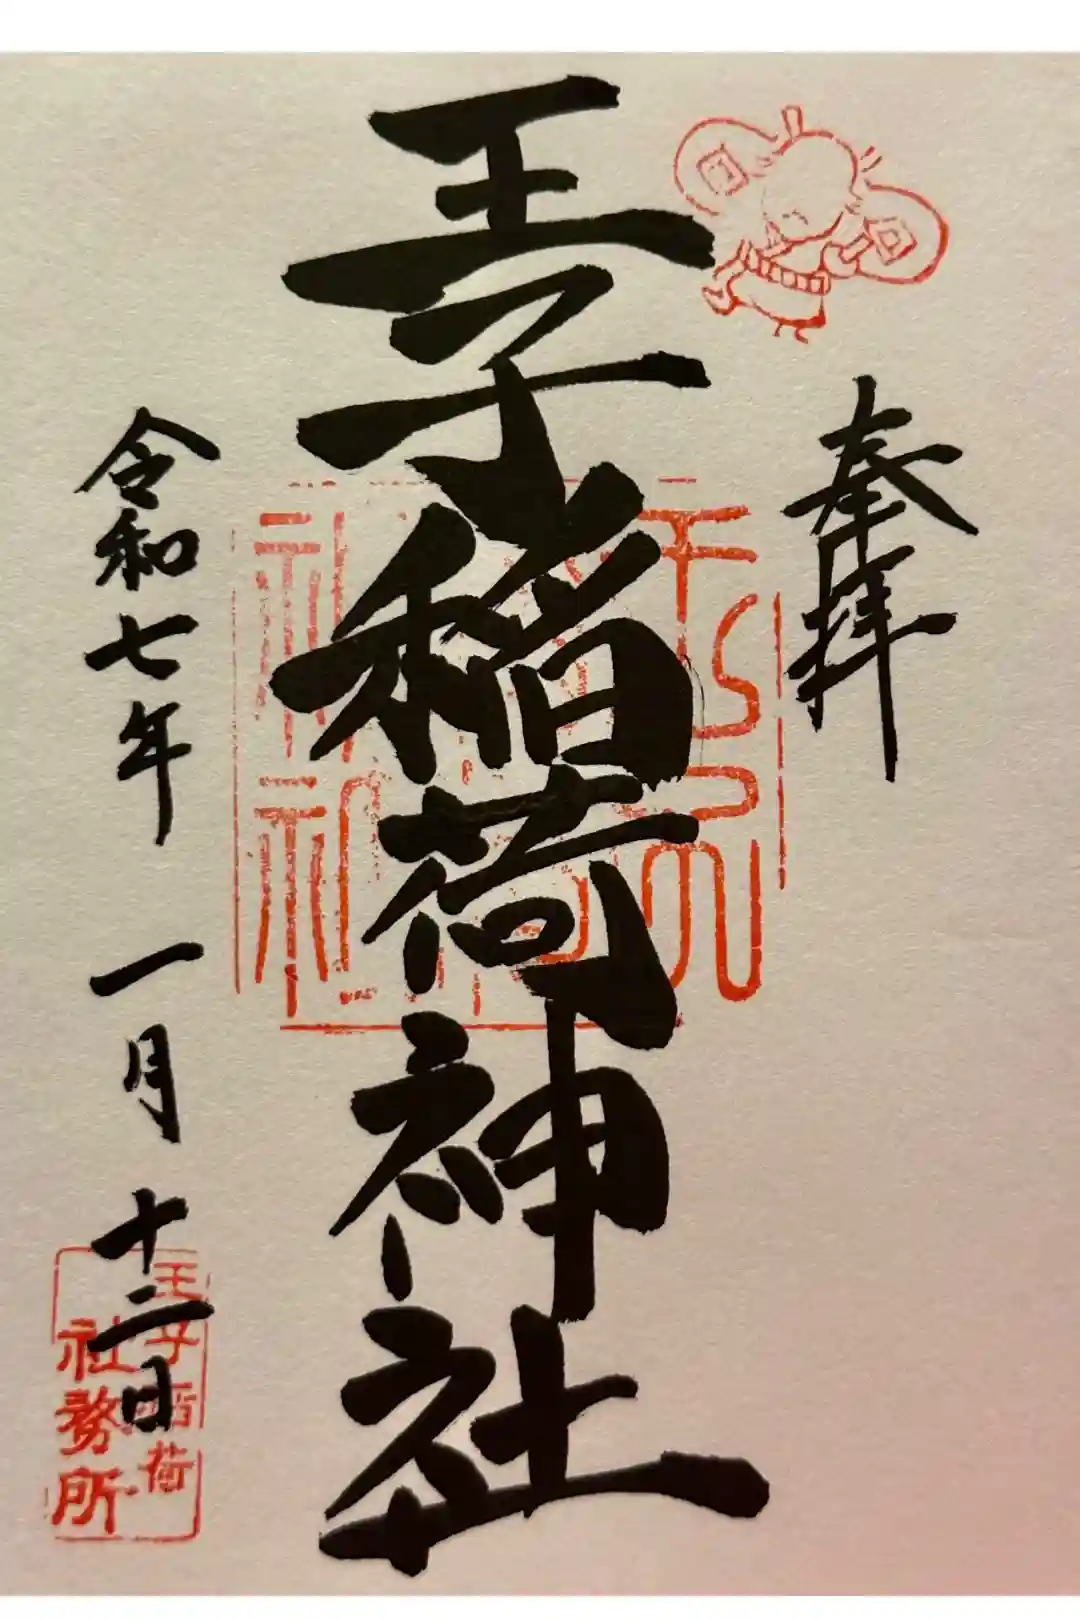 奉拝
王子稲荷神社
令和七年一月十二日
王子稲荷
社務所